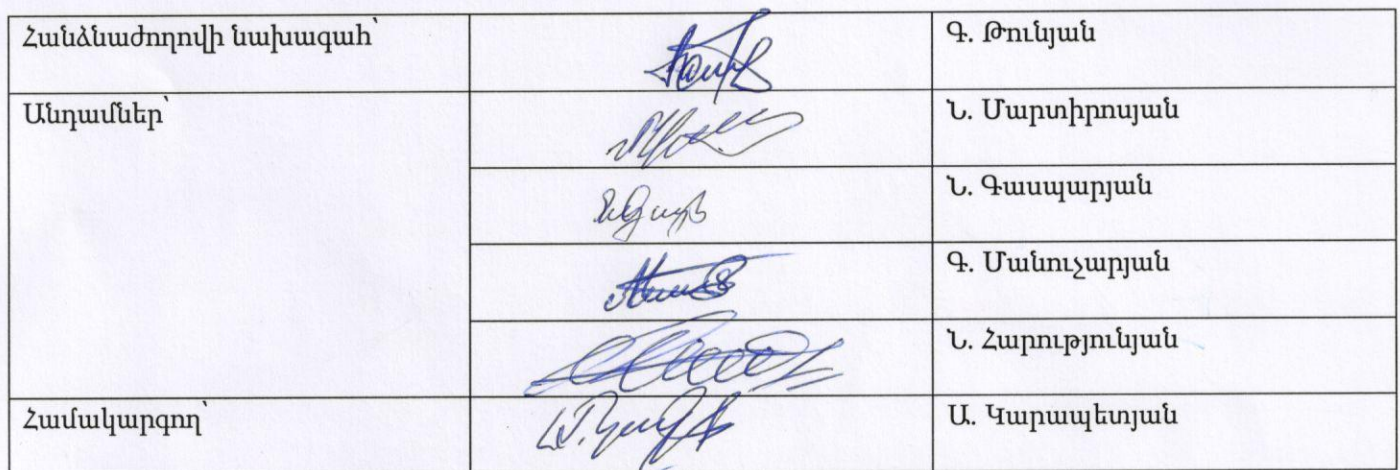 Հանձնաժողովի նախագահ՝
Գ. Թունյան
Անդամներ՝
Ն. Մարտիրոսյան
Ն. Գասպարյան
Գ. Մանուչարյան
Ն. Հարությունյան
Համակարգող՝
Ա. Կարապետյան